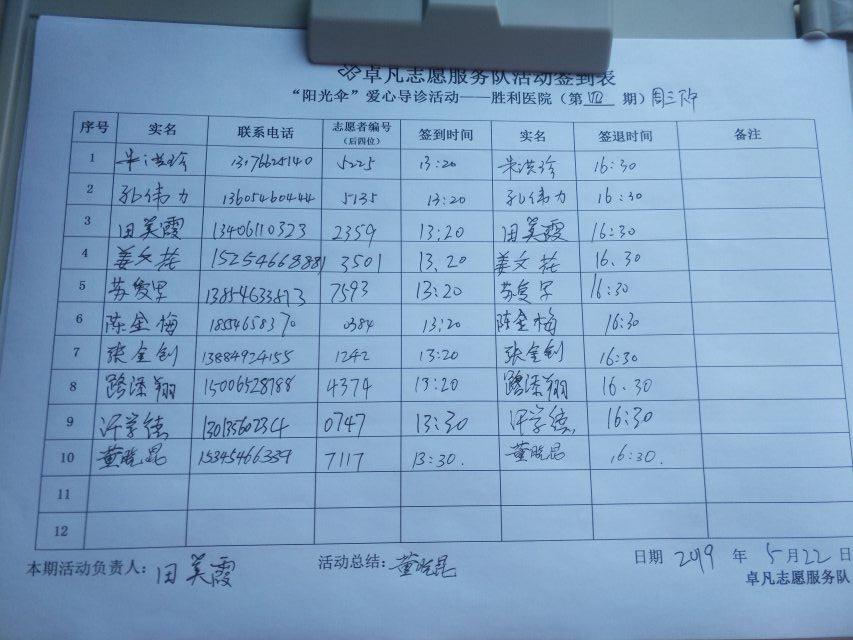 卓凡志愿服务队活动签到表
“阳光伞”爱心导诊活动——胜利医院（第四期）周三下午
序号 实名 联系电话 志愿者编号（后四位） 签到时间 实名 签退时间 备注
1 洪珍 5225 13:20 洪珍 16:30
2 孔伟力 13605460444 5135 13:20 孔伟力 16:30
3 田美霞 13406110323 2359 13:20 田美霞 16:30
4 姜文花 15254668881 3501 13.20 姜文花 16.30
5 苏 13854633873 7593 13:20 苏 16:30
6 陈金梅 0384 13:20 陈金梅 16:30
7 张金剑 13884924155 1242 13:20 张金剑 16:30
8 路泽翔 15006528788 4374 13:20 路泽翔 16.30
9 许学德 13013560234 0747 13:30 许学德 16:30
10 董晓昆 15345466339 7117 13:30. 董晓昆 16:30.
11
12
本期活动负责人：田美霞 活动总结：董晓昆 日期 2019 年 5 月 22 日
卓凡志愿服务队